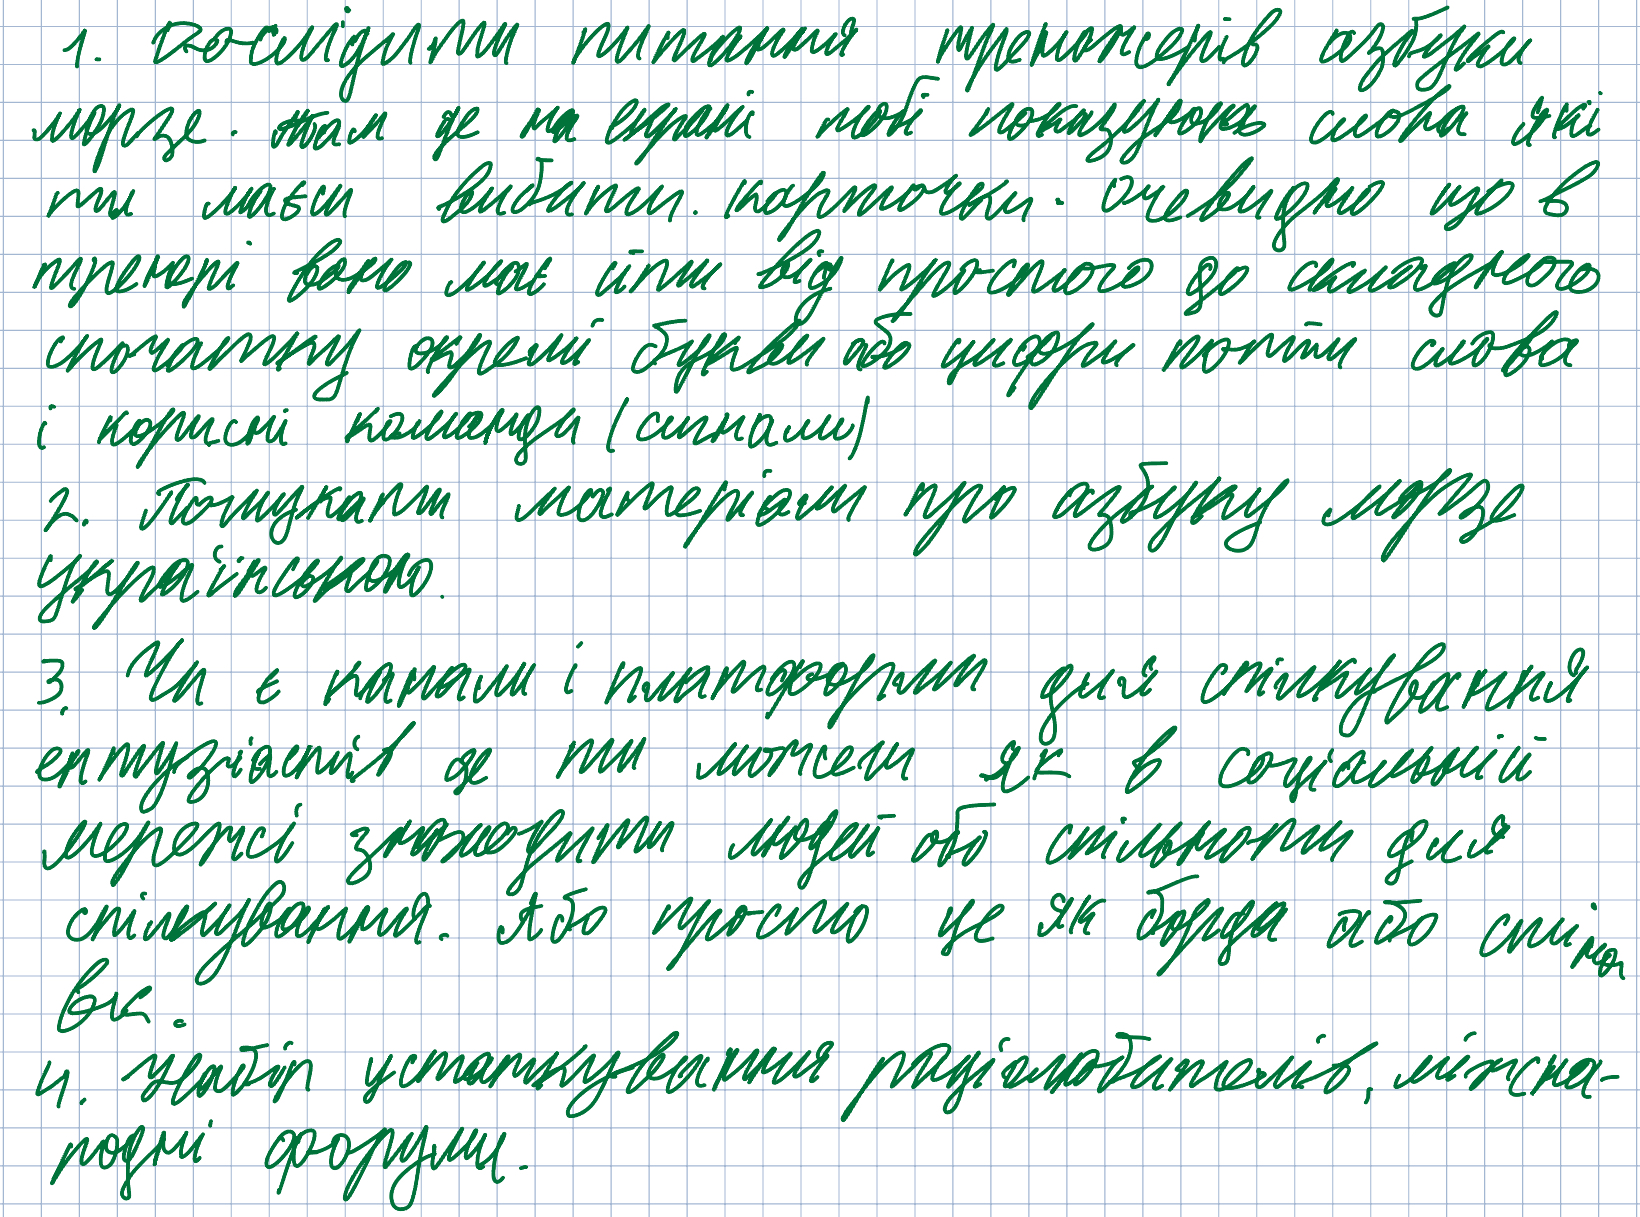 1. Дослідити питання тренажерів азбуки
морзе. там де на екрані тобі показують слова які
ти маєш вибити. карточки. Очевидно що в
тренері воно має йти від простого до складного
спочатку окремі букви або цифри потім слова
і корисні команди (сигнали)
2. Пошукати матеріали про азбуку морзе
українською.
3. Чи є канали і платформи для спілкування
ентузіастів де ти можеш як в соціальній
мережі знаходити людей або спільноти для
спілкування. Або просто це як борда або
4. Набір устаткування радіолюбителів, міжна-
родні форуми.